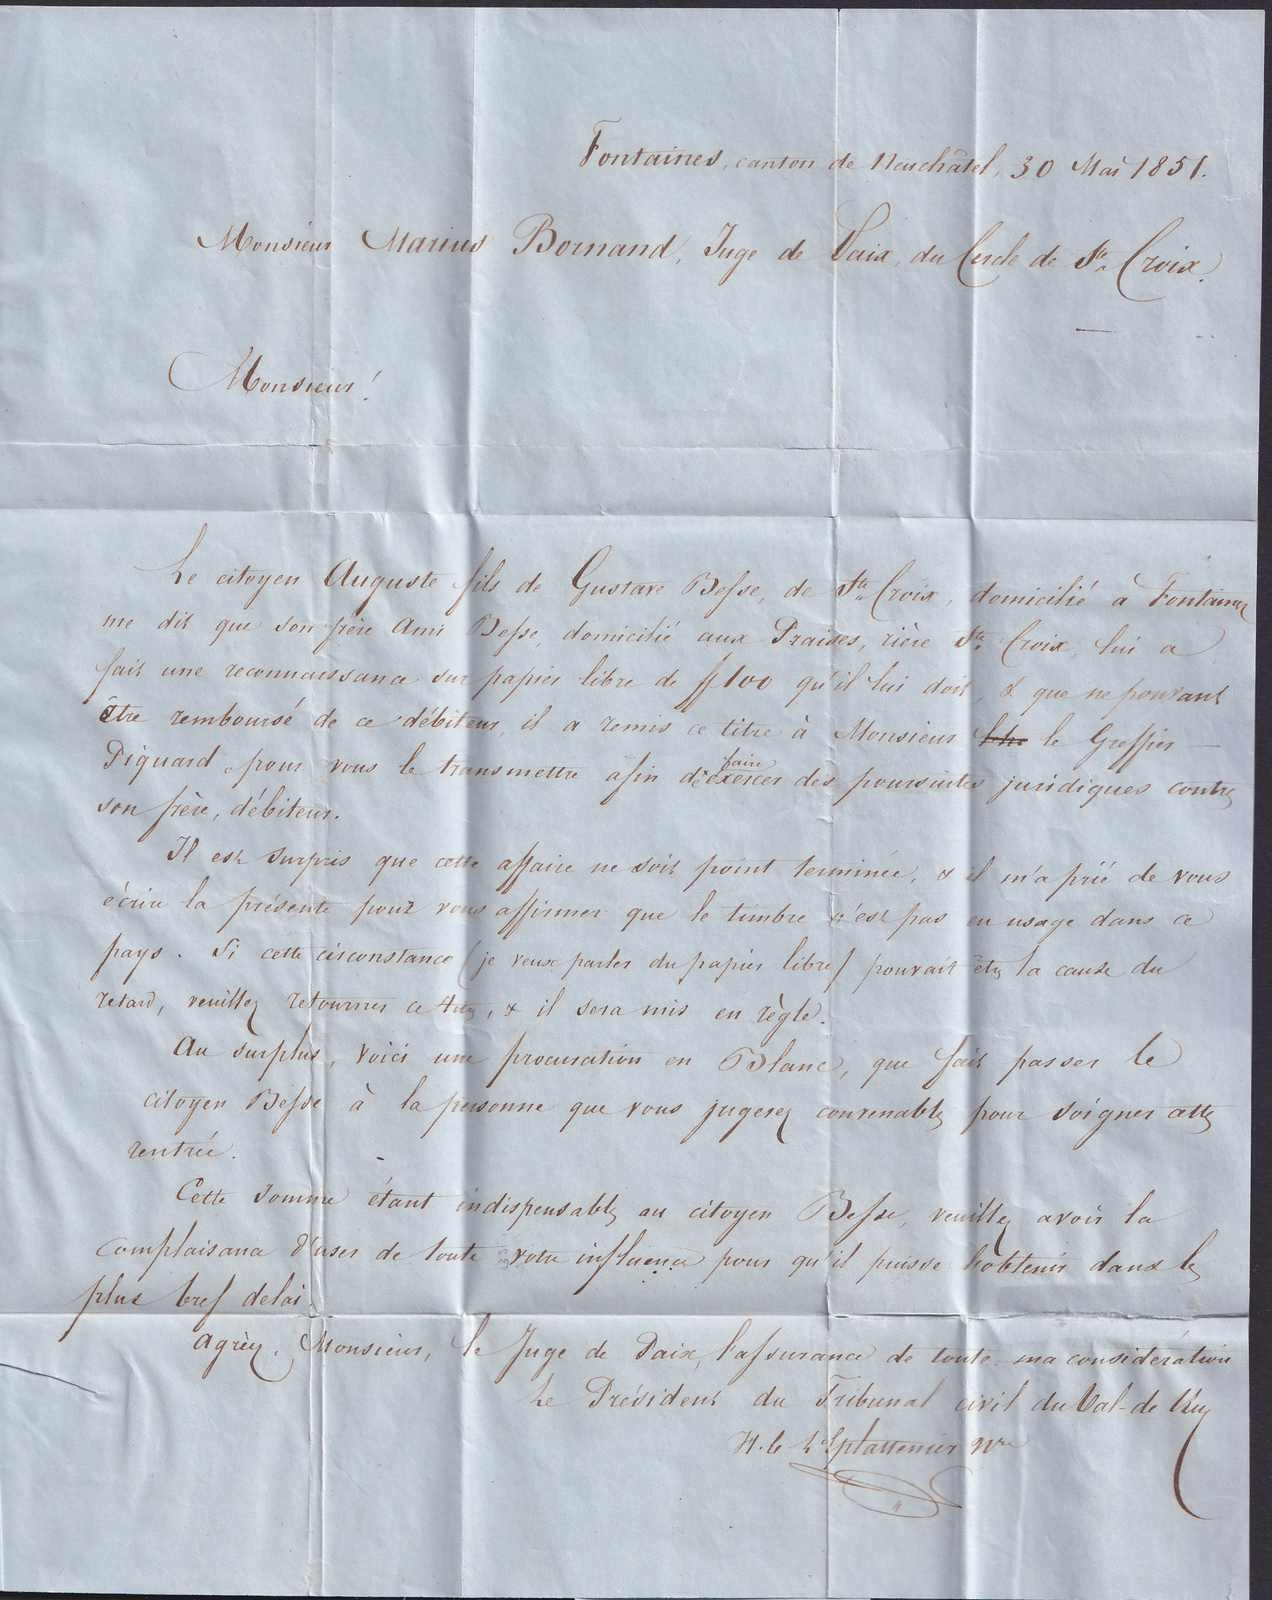 Fontaines, canton de Neuchâtel, 30 Mai 1851.
Monsieur Marius Bornand, Juge de Paix, du Cercle de Ste Croix.
Monsieur!
Le citoyen Auguste fils de Gustave Besse, de Ste Croix, domicilié à Fontaines
me dit que son frère Ami Besse, domicilié aux Praises, rière Ste Croix, lui a
fait une reconnaissance sur papier libre de ff 100 qu'il lui doit, & que ne pouvant
être remboursé de ce débiteur, il a remis ce titre à Monsieur le Greffier
Piguard, pour vous le transmettre afin de faire exercer des poursuites juridiques contre
son frère, débiteur.
Il est surpris que cette affaire ne soit point terminée, & il m'a prié de vous
écrire la présente pour vous affirmer que le timbre n'est pas en usage dans ce
pays. Si cette circonstance (je veux parler du papier libre) pouvait être la cause du
retard, veuillez retourner ce titre, & il sera mis en règle.
Au surplus, voici une procuration en Blanc, que fait passer le
citoyen Besse à la personne que vous jugerez convenable pour soigner cette
rentrée.
Cette somme étant indispensable au citoyen Besse, veuillez avoir la
complaisance d'user de toute votre influence pour qu'il puisse l'obtenir dans le
plus bref delai.
Agréez, Monsieur, le Juge de Paix, l'assurance de toute ma considération
Le Président du Tribunal civil du Val-de Ruz
H. le L'Eplattenier Nre